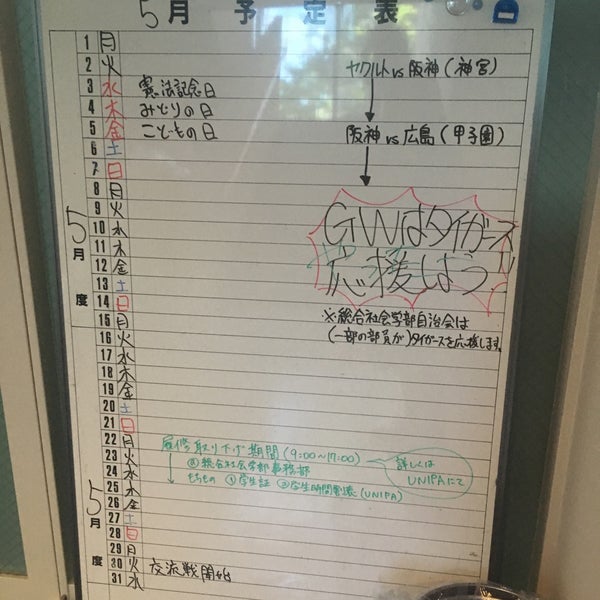 5月予定表
1 月
2 火 ヤクルトvs阪神(神宮)
3 水 憲法記念日
4 木 みどりの日
5 金 こどもの日 阪神vs広島(甲子園)
6 土
7 日
8 月
9 火
10 水
11 木
12 金
13 土
14 日
5月度
GWはタイガース
応援しよう
※総合社会学部自治会は
(一部の部員が)タイガースを応援します。
15 月
16 火
17 水
18 木
19 金
20 土
21 日
22 月 履修取り下げ期間(9:00~17:00)
23 火 @総合社会学部事務部
24 水 もちもの ①学生証 ②学生時間割表(UNIPA)
詳しくは
UNIPAにて
25 木
26 金
27 土
28 日
29 月
30 火 交流戦開始
31 水
5月度